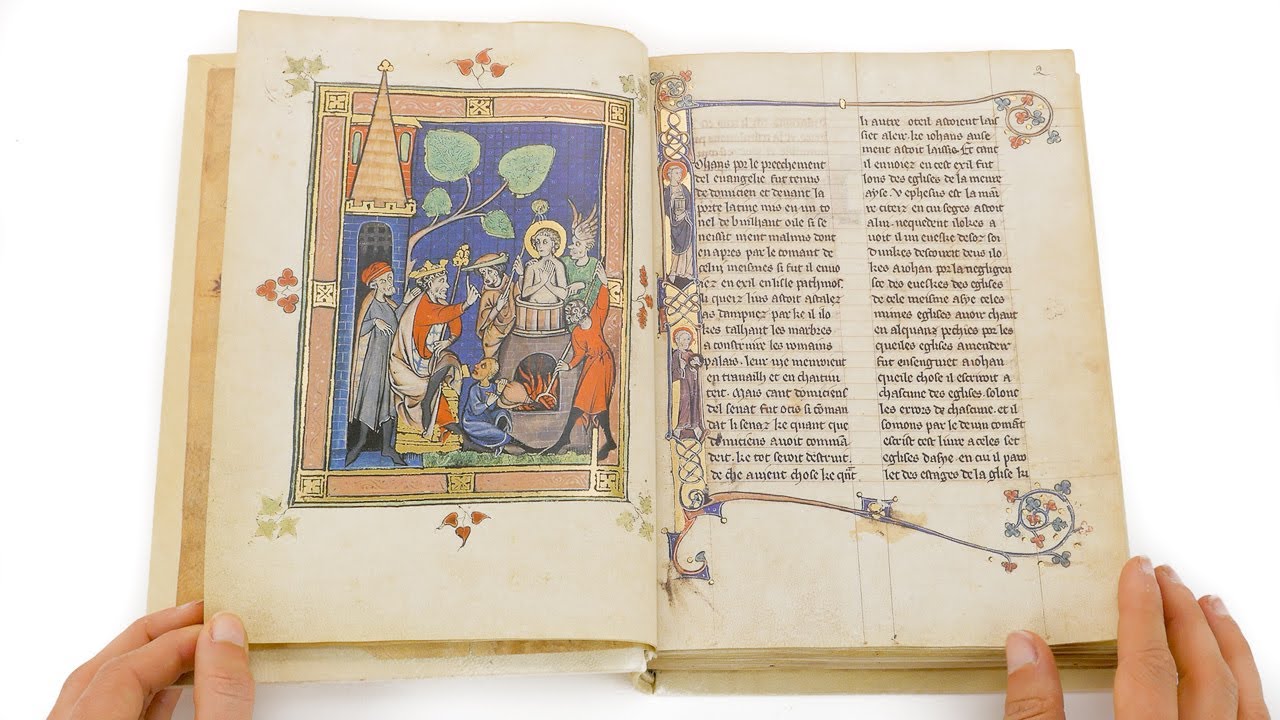 2
ohans por le preechement
el euangelie fut tenus
de domicien et deuant la
porte latine mis en un to
nel de builhant oile si se
neissit ment malmis dont
en apres par le comant de
celui meismes si fut il enuo
iez en exil en lisle pathmos.
li queiz lius astoit
as dampnez par ke il ilo
kes talhant les marbres
a construire les romains
palais. leur uie menoient
en trauailh et en chaitiui
teit. Mais cant domiciens
del senat fut ocis si coman
dat li senaz ke quant que
domiciens auoit comma
deit. ke tot seroit destruit.
de che auient chose ke
li autre oreil astoient lais
siet aleir. ke iohans ause
ment astoit laissis. Et cant
il enuoiez en cest exil fut
lons des eglises de la meure
ayse. V ephesus est la maire
citeiz en cui seges astoit
alui. nequedent ilokes a
uoit il un eueske desor soi
dunkes descourit deus ilo
kes a iohan por la negligen
sce des eueskes des eglises
de cele meisme asye celes
mimes eglises auoir chaut
en alquanz pechies por les
queiles eglises amendeir
fut ensengniet a iohan
queile chose il escriroit a
chascune des eglises. solonc
les errors de chascune. et il
somons par le deuin comant
escrist cest liure a celes set
eglises dasye. en cui il paro
let des estanges de la glise ki